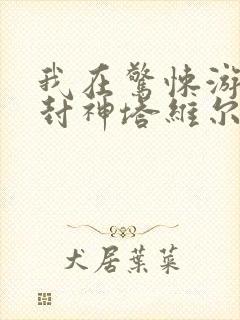 我在驚悚游
封神塔維尔
犬居葉菜